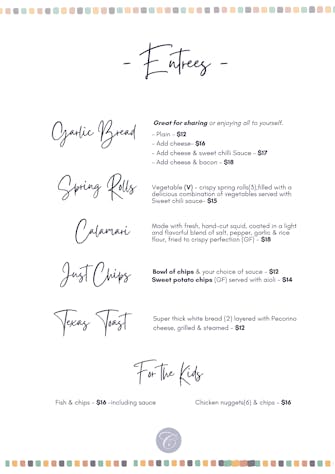 - Entrees -
Garlic Bread
Great for sharing or enjoying all to yourself.
- Plain - $12
- Add cheese- $16
- Add cheese & sweet chilli Sauce - $17
- Add cheese & bacon - $18
Spring Rolls
Vegetable (V) - crispy spring rolls(5),filled with a
delicious combination of vegetables served with
Sweet chili sauce- $15
Calamari
Made with fresh, hand-cut squid, coated in a light
and flavorful blend of salt, pepper, garlic & rice
flour, fried to crispy perfection (GF) - $18
Just Chips
Bowl of chips & your choice of sauce - $12
Sweet potato chips (GF) served with aioli - $14
Texas Toast
Super thick white bread (2) layered with Pecorino
cheese, grilled & steamed - $12
For the Kids
Fish & chips - $16 -including sauce
Chicken nuggets(6) & chips - $16
C